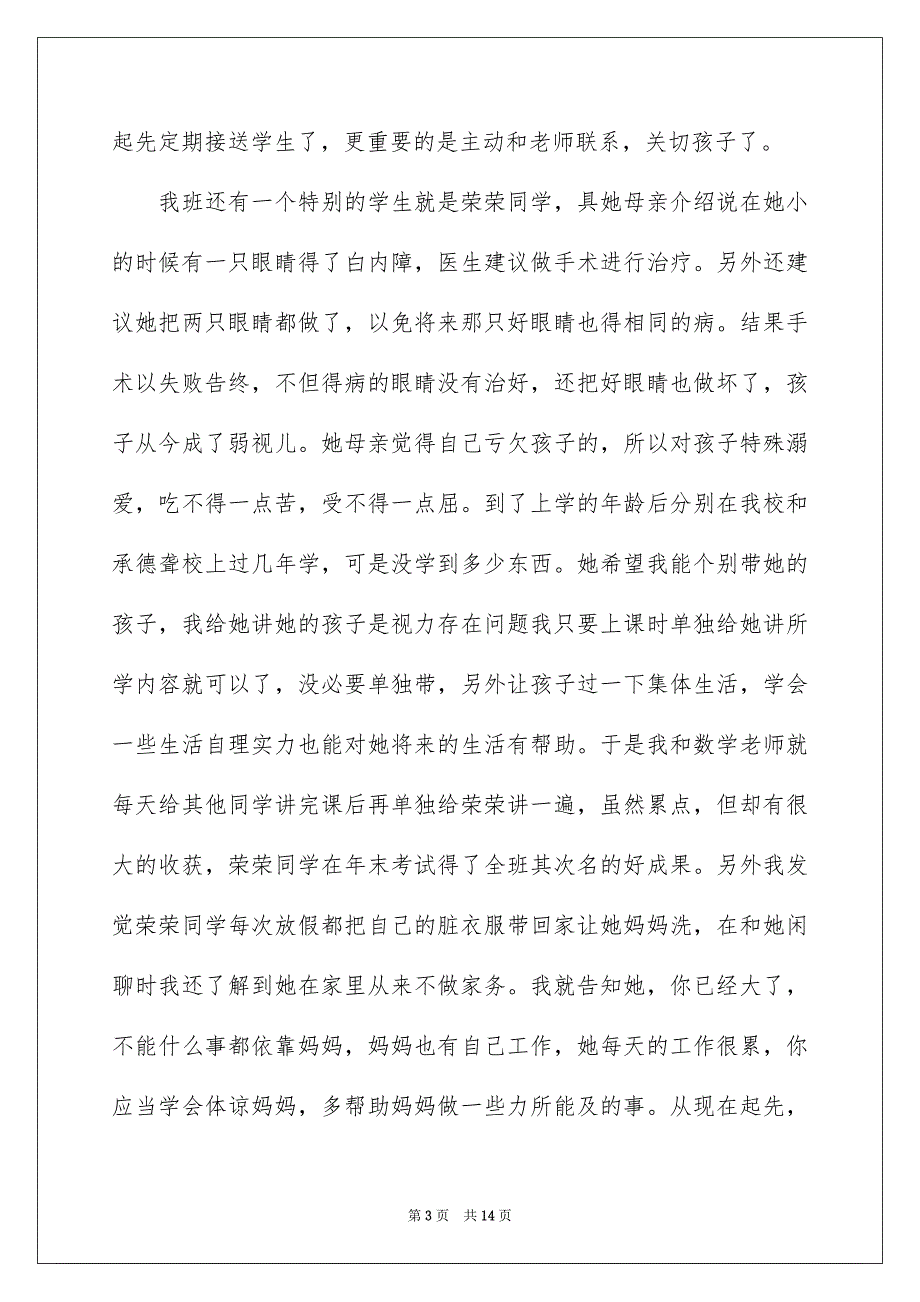 起先定期接送学生了，更重要的是主动和老师联系，关切孩子了。
我班还有一个特别的学生就是荣荣同学，具她母亲介绍说在她小
的时候有一只眼睛得了白内障，医生建议做手术进行治疗。另外还建
议她把两只眼睛都做了，以免将来那只好眼睛也得相同的病。结果手
术以失败告终，不但得病的眼睛没有治好，还把好眼睛也做坏了，孩
子从今成了弱视儿。她母亲觉得自己亏欠孩子的，所以对孩子特殊溺
爱，吃不得一点苦，受不得一点屈。到了上学的年龄后分别在我校和
承德聋校上过几年学，可是没学到多少东西。她希望我能个别带她的
孩子，我给她讲她的孩子是视力存在问题我只要上课时单独给她讲所
学内容就可以了，没必要单独带，另外让孩子过一下集体生活，学会
一些生活自理实力也能对她将来的生活有帮助。于是我和数学老师就
每天给其他同学讲完课后再单独给荣荣讲一遍，虽然累点，但却有很
大的收获，荣荣同学在年末考试得了全班其次名的好成果。另外我发
觉荣荣同学每次放假都把自己的脏衣服带回家让她妈妈洗，在和她闲
聊时我还了解到她在家里从来不做家务。我就告知她，你已经大了，
不能什么事都依靠妈妈，妈妈也有自己工作，她每天的工作很累，你
应当学会体谅妈妈，多帮助妈妈做一些力所能及的事。从现在起先，
第 3 页 共 14 页